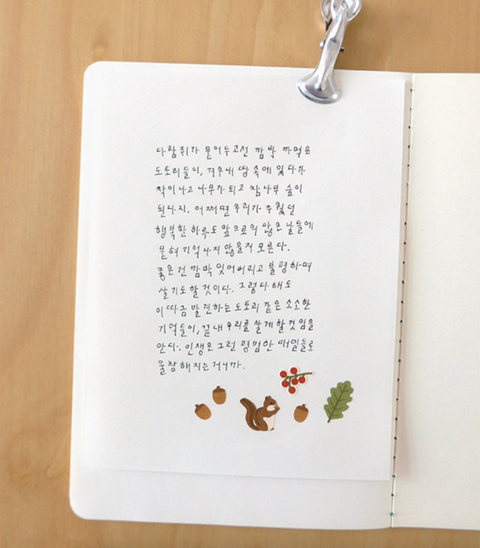 다람쥐가 묻어두고선 깜빡 까먹은
도토리들이, 겨우내 땅 속에 있다가
싹이 나고 나무가 되고 참나무 숲이
된다지. 어쩌면 우리가 주웠던
행복한 하루도 앞으로의 많은 날들에
묻혀 기억 나지 않을지 모른다.
좋은 건 깜빡 잊어버리고 불평하며
살기도 할 것이다. 그렇다 해도
이따금 발견하는 도토리 같은 소소한
기억들이, 끝내 우리를 살게 할 것임을
안다. 인생은 그런 평범한 매일들로
울창해지는 거니까.